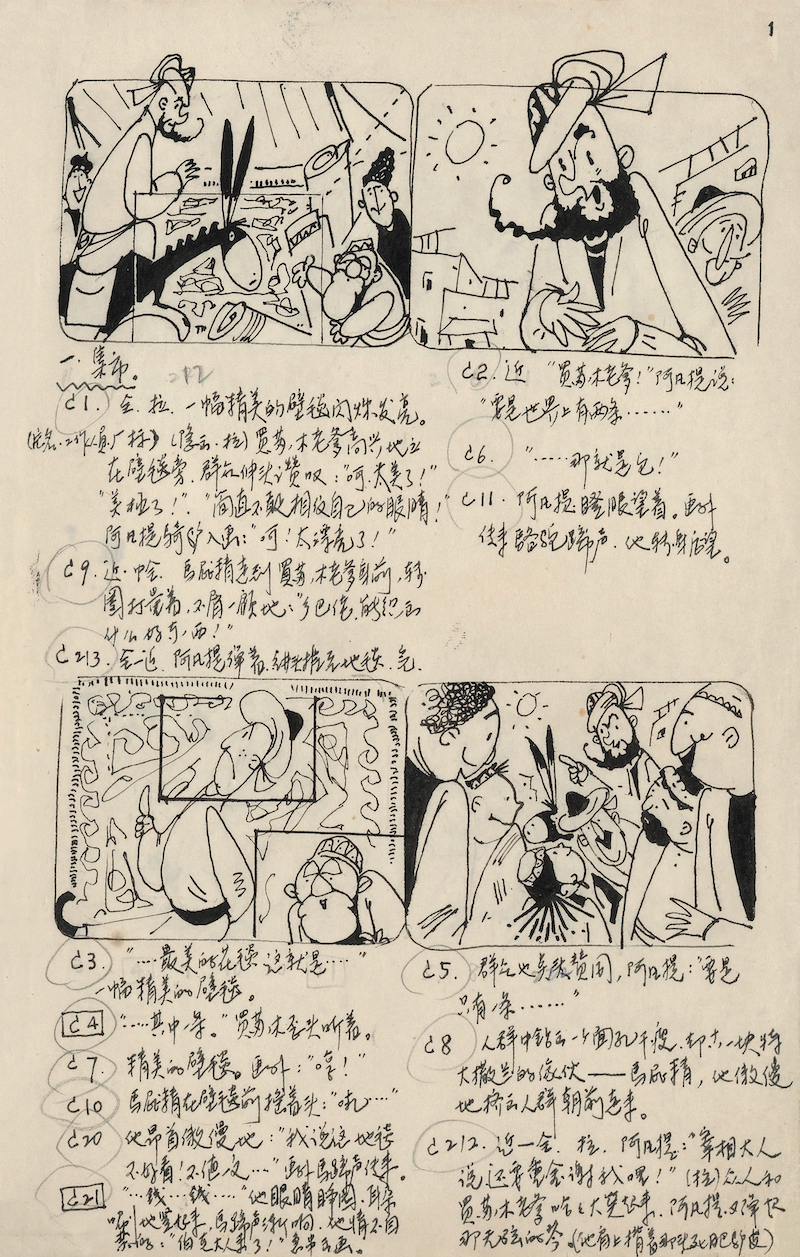 1
一. 集市。
212
C1. 全. 拉. 一幅精美的壁毯闪烁发亮。
(片名. 工作人员. 厂标) (隐去. 拉) 买苏木老爹高兴地立
在壁毯旁. 群众伸头赞叹:"呵. 太美了!"
"美极了!". "简直不敢相信自己的眼睛!"
阿凡提骑驴入画:"呵! 太漂亮了!"
C9. 近. 中全. 马屁精走到买苏木老爹身前, 转
圈打量着, 不屑一顾地:"乡巴佬, 能织出
什么好东西!"
C213. 全—近. 阿凡提弹着. 镜头推至地毯. 完.
C2. 近 "买苏木老爹!" 阿凡提说:
"要是世界上有两条……"
C6. "……那就是它!"
C11. 阿凡提瞪眼望着。画外
传来骆驼蹄声. 他转身后望。
C3. "…最美的花毯 这就是…"
一幅精美的壁毯。
C4 "…其中一条。" 买苏木歪头听着。
C7. 精美的壁毯。画外:"哼!"
C10 马屁精在壁毯前摇着头:"吡…"
C20 他昂首傲慢地:"我说这地毯
不好看! 不值一文…" 画外马蹄声传来.
C21 "…钱…钱…" 他眼睛睁圆. 耳朵
马蹄声渐响. 他情不自
禁的:"伯克大人来了!"
C5. 群众也点头赞同, 阿凡提:"要是
只有一条……"
C8 人群中钻出一个面孔干瘦.
大撒兰的傢伙——马屁精, 他傲慢
地挤出人群朝前走来。
C212. 近—全. 拉. 阿凡提:"宰相大人
说, 还要重金谢我嘿!" (拉) 众人和
买苏木老爹哈哈大笑起来. 阿凡提又弹起
那无弦的琴.